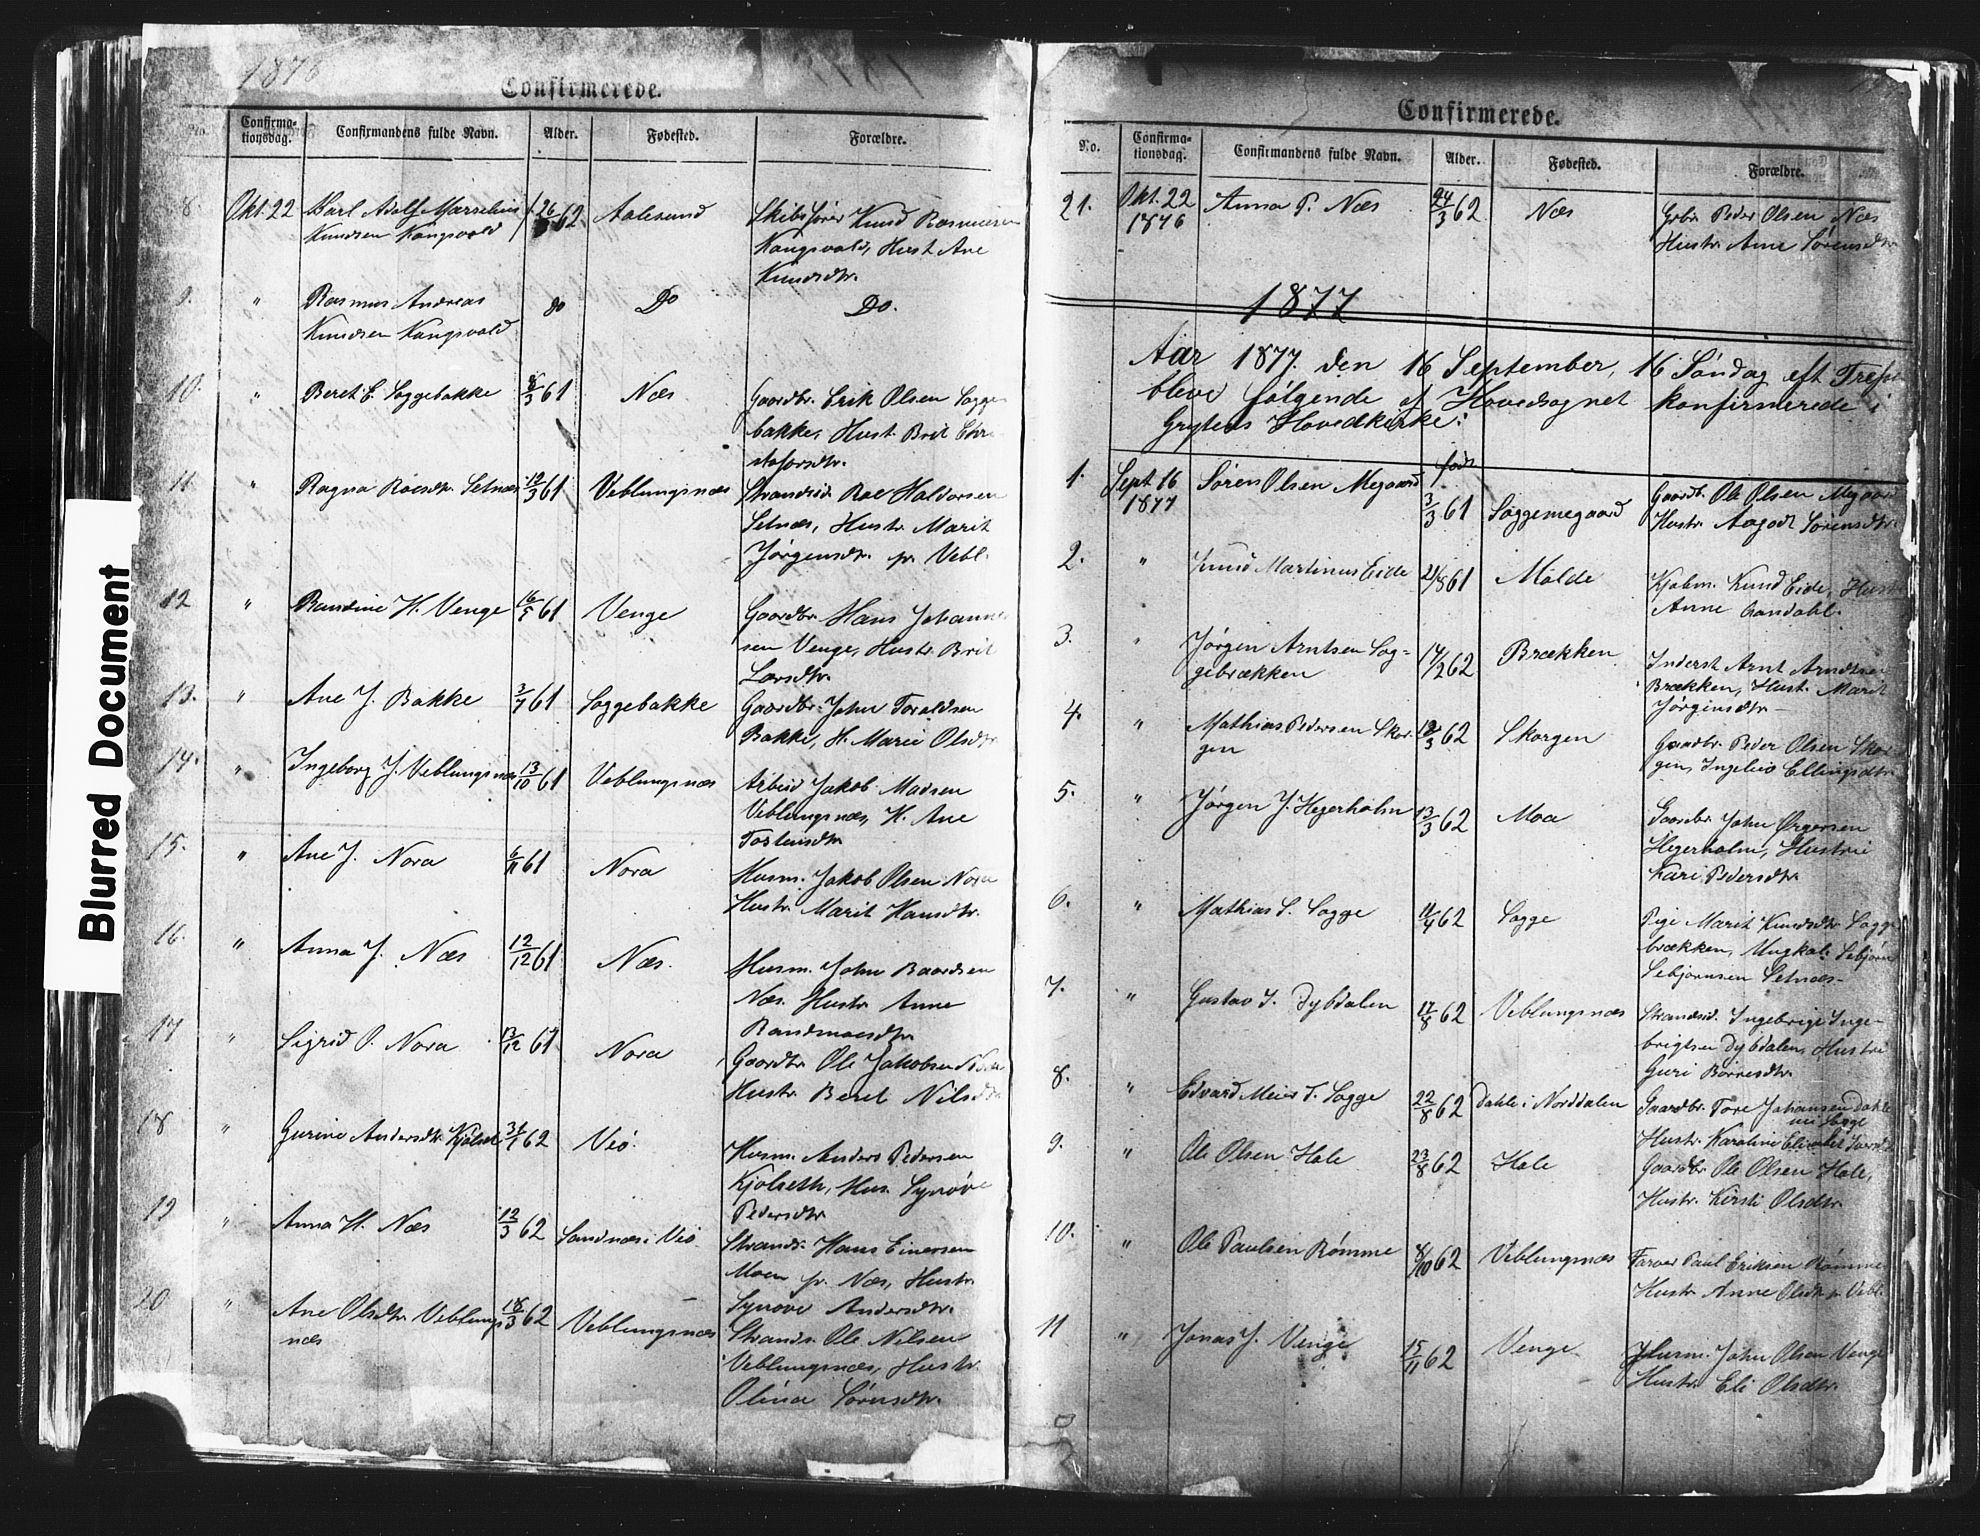 Blurred Document
1876
Confirmerede.
No. Confirma-tionsdag. Confirmandens fulde Navn. Alder. Fødested. Forældre.
8. Okt. 22 Karl Adolf Marselius 26/ 62 Aalesund Skibsfører Knud Rasmusen
Knudsen Kangsvold Kangsvold, Hust Ane
Knudsdtr.
9. " Rasmus Andreas do Do Do.
Knudsen Kangsvold
10. " Beret E. Soggebakke 8/3 61 Næs Gaardbr. Erik Olsen Sogge
bakke, Hust. Brit Chri
stofersdtr.
11 " Ragna Roesdtr. Setnæs 12/3 61 Veblungsnæs Strandsid. Roe Haldorsen
Setnæs, Hustr. Marit
Jørgensdtr. pr. Vebl.
12 " Randine H. Venge 16/5 61 Venge Gaardbr. Hans Johanne
sen Venge, Hustr. Brit
Larsdtr.
13. " Ane J. Bakke 3/7 61 Soggebakke Gaardbr. John Toraldsen
Bakke, H. Marie Olsdtr
14. " Ingeborg J. Veblungsnæs 13/10 61 Veblungsnæs Arbeid Jakob Madsen
Veblungsnæs, H. Ane
Tostensdtr
15. " Ane J. Nora 6/11 61 Nora Husm. Jakob Olsen Nora
Hustr. Marit Hansdtr.
16. " Anna J. Næs 12/12 61 Næs. Husm. John Baardsen
Næs. Hustr. Anne
Randmoesdtr
17 " Sigrid O. Nora 13/12 61 Nora Gaardbr. Ole Jakobsen Nora
Hustr. Beret Nilsdtr
18 " Gurine Andersdtr. Kjølset 31/1 62 Veø Husm. Anders Pedersen
Kjølseth, Hus. Synøve
Pedersdtr
19 " Anna H. Næs 12/3 62 Sandnæs i Veø Strands. Hans Einersen
Moen pr. Næs, Hustr.
Synøve Andersdtr.
20 " Ane Olsdtr. Veblungs 18/3 62 Veblungsnæs Strands. Ole Nilsen
næs Veblungsnæs, Hustr.
Olina Sørensdtr.
Confirmerede.
No. Confirma-tionsdag. Confirmandens fulde Navn. Alder. Fødested. Forældre.
21. Okt. 22 Anna P. Næs 24/3 62 Næs Gbr. Peder Olsen Næs
1876 Hustr. Anne Sørensdtr.
1877
Aar 1877. den 16 September, 16 Søndag eft Tref
bleve følgende af Hovedsognet konfirmerede i
Grytens Hovedkirke:
født
1. Sept 16 Søren Olsen Megaard 3/3 61 Soggemegaard Gaardb. Ole Olsen Megaard
1877 Hustr. Aagot Sørensdtr.
2. " Knud Martinus Eide 21/8 61 Molde Kjøbm. Knud Eide, Hustr
Anne
3. " Jørgen Arntsen Sog- 14/2 62 Brækken Inderst Arnt Arndtsen
gebrækken Brækken, Hust. Marit
Jørginsdtr
4. " Mathias Pedersen Skor- 12/3 62 Skorgen Gaardbr. Peder Olsen Skor
gen gen, Ingeleiv Ellingsdtr
5. " Jørgen J. Hegerholm 13/3 62 Moa Gaardbr. John Ørgersen
Hegerholm, Hustrue
Kari Pedersdtr.
6. " Mathias S. Sogge 11/4 62 Sogge Pige Marit Knudsdtr. Sogge
brækken, Ungkal: Sebjørn
Sebjørnsen Setnæs-
7. " Gustav I. Dybdalen 17/8 62 Veblungsnæs Strandsid. Ingebrigt Inge-
brigtsen Dybdalen, Hustru
Guri Baaresdtr.
8. " Edvard Meier T. Sogge 22/8 62 Dahle i Norddalen Gaardbr. Tore Johansen Dahle
nu Sogge
Hustr. Karoline Elisabet
9. " Ole Olsen Hole 23/8 62 Hole Gaardbr. Ole Olsen Hole,
Hustr. Kirsti Olsdtr.
10. " Ole Paulsen Rømme 8/10 62 Veblungsnæs Farver Paul Eriksen Rømme
Hustr. Anne Olsdtr. pr. Vebl.
11 " Jonas J. Venge 15/11 62 Venge Husm. John Olsen Venge
Hustr. Eli Olsdtr.